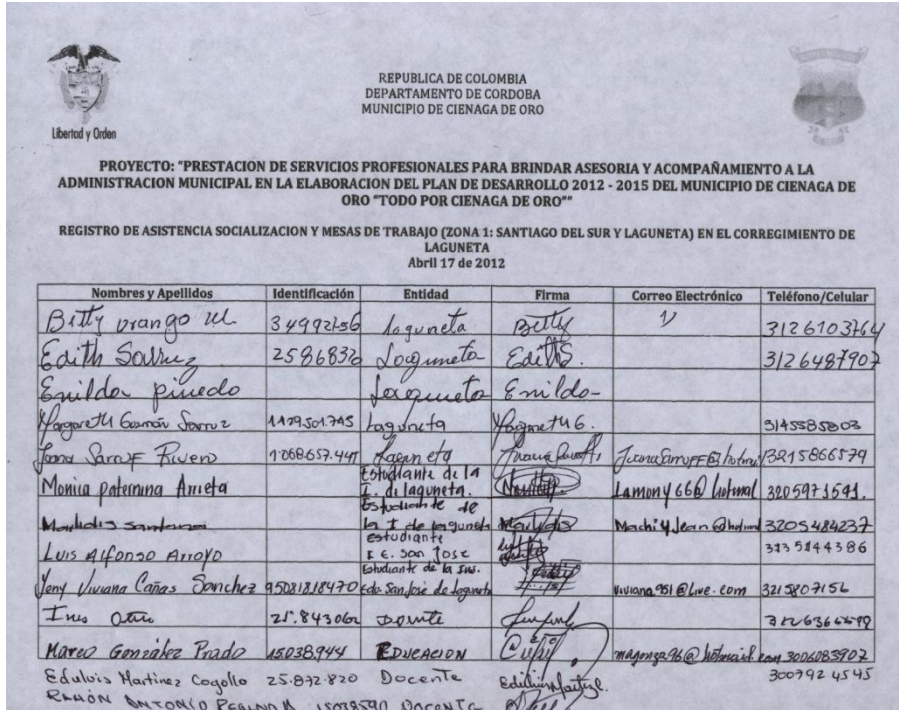 Libertad y Orden
REPUBLICA DE COLOMBIA
DEPARTAMENTO DE CORDOBA
MUNICIPIO DE CIENAGA DE ORO
PROYECTO: "PRESTACION DE SERVICIOS PROFESIONALES PARA BRINDAR ASESORIA Y ACOMPAÑAMIENTO A LA
ADMINISTRACION MUNICIPAL EN LA ELABORACION DEL PLAN DE DESARROLLO 2012 - 2015 DEL MUNICIPIO DE CIENAGA DE
ORO "TODO POR CIENAGA DE ORO""
REGISTRO DE ASISTENCIA SOCIALIZACION Y MESAS DE TRABAJO (ZONA 1: SANTIAGO DEL SUR Y LAGUNETA) EN EL CORREGIMIENTO DE
LAGUNETA
Abril 17 de 2012
Nombres y Apellidos Identificación Entidad Firma Correo Electrónico Teléfono/Celular
Betty Orango M 34992756 Laguneta Betty 3126103764
Edith 2586832 Laguneta Edith S. 3126487907
Enilda Pinedo Laguneta Enilda
Margareth Guzmán 1129.501.745 Laguneta Margareth G. 3145585803
Joana Rivero 1.068.657.441 Laguneta 3215866579
Monica paternina Arrieta Estudiante de la I. de laguneta. Lamony66@hotmal 3205971541.
Estudiante de la I de laguneta 3205484237
Luis Alfonso Arroyo estudiante I E. San Jose 3135144386
Yeny Viviana Cañas Sanchez 95081818470 Estudiante de la Ins. Edu. San José de laguneta viviana.951@live.com 3215807156
Ines 25.843062 Docente
Marco González Prado 15.038.944 EDUCACION magonza96@hotmail.com 3006083907
Edulvis Martinez Cogollo 25.872.820 Docente 3007924545
RAMÓN ANTONIO 15038590 DOCENTE